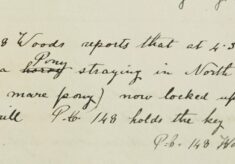 8 Woods reports that at 4.3
Pony
a horse straying in North
mare (pony) now locked up
ill P.C. 148 holds the key
P.C. 148 W